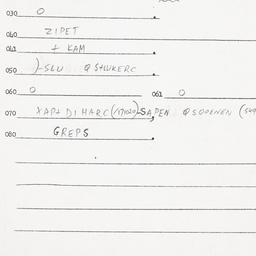 030 O
040 ZIPET
041 + KAM
050 )-SLU @ STWKERC
060 O 061 O
070 XAP+ DI HARC (17020)-SAPEN @ SOOENEN (
080 GREPS